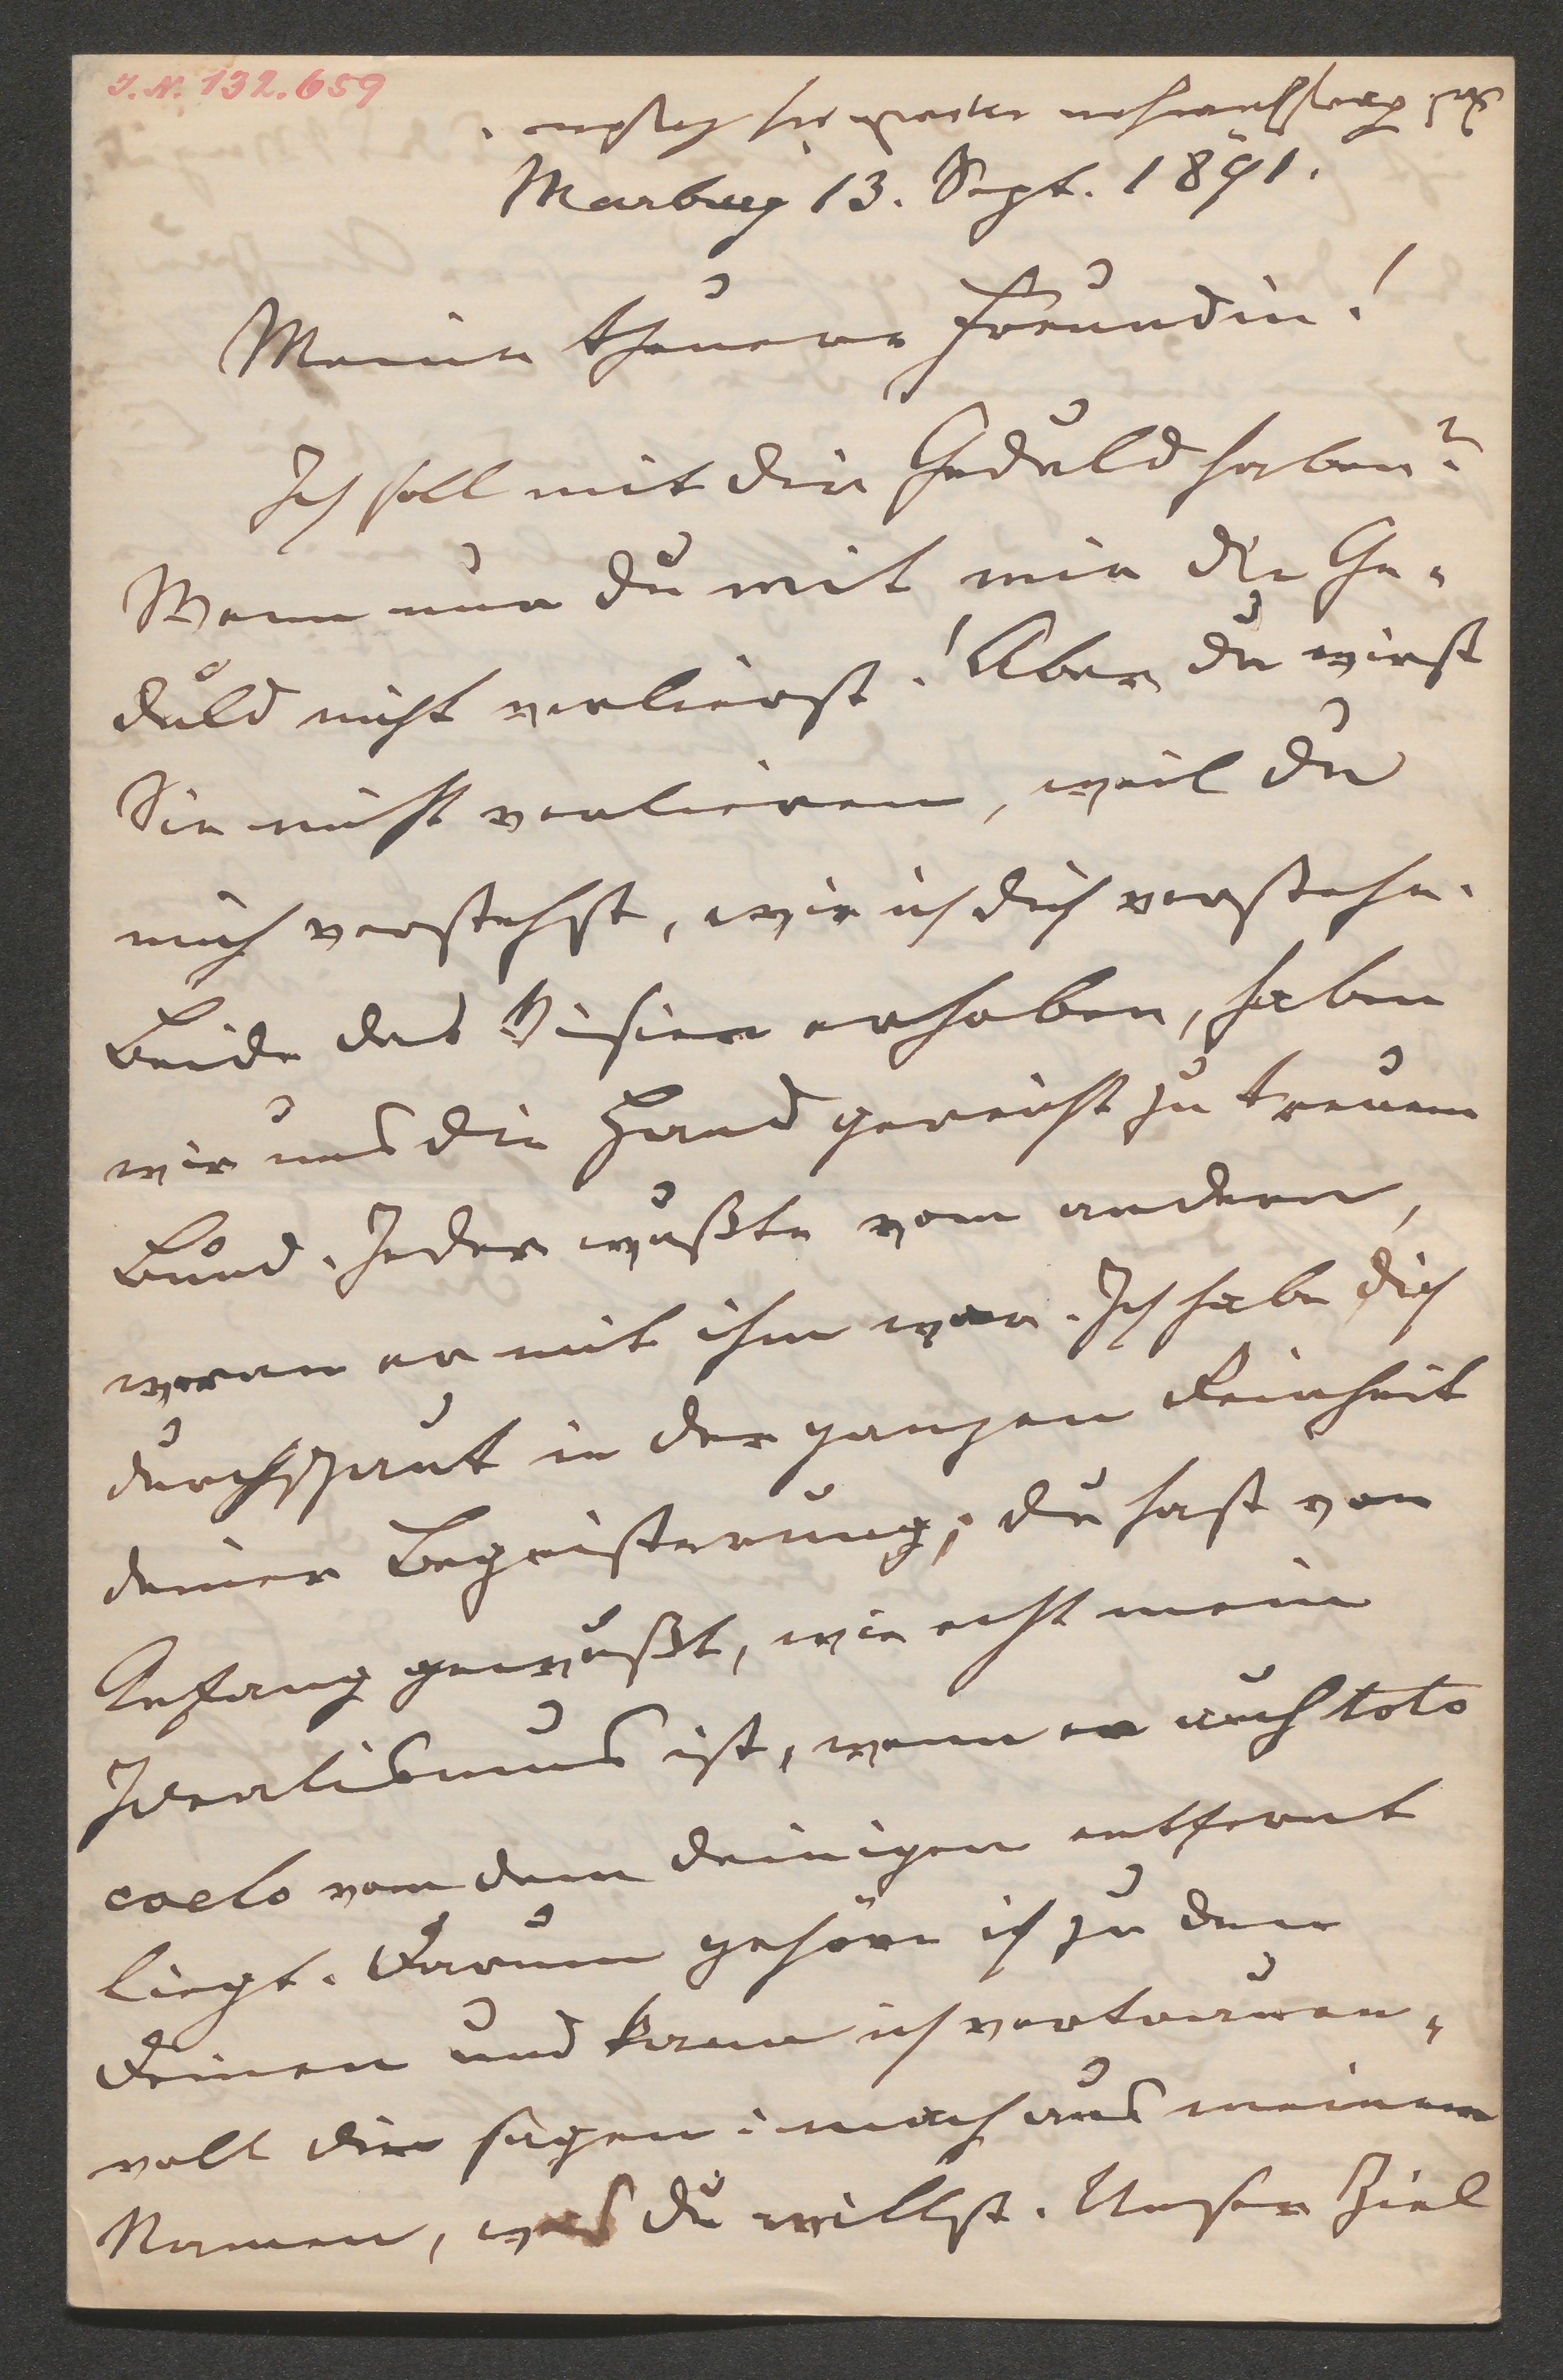 I.N. 132.659
Marburg 13. Sept. 1891.
Meine theuere Freundin!
Ich soll mit dir Geduld haben?
Wenn nur du mit mir die Ge-
duld nicht verlierst! Aber du wirst
Sie nicht verlieren, weil du
mich verstehst, wie ich dich verstehe.
Beide das Visier erhoben, haben
wir uns die Hand gereicht zu treuem
Bund. Jeder wußte vom andern,
woran er mit ihm war. Ich habe dich
durchschaut in der ganzen Reinheit
deiner Begeisterung; du hast von
Anfang gewußt, wie echt mein
Idealismus ist, wenn er auch toto
coelo von dem deinigen entfernt
liegt. Darum gehöre ich zu den
Deinen und kann ich vertrauens-
voll dir sagen: mach aus meinem
Namen, was du willst. Unser Ziel